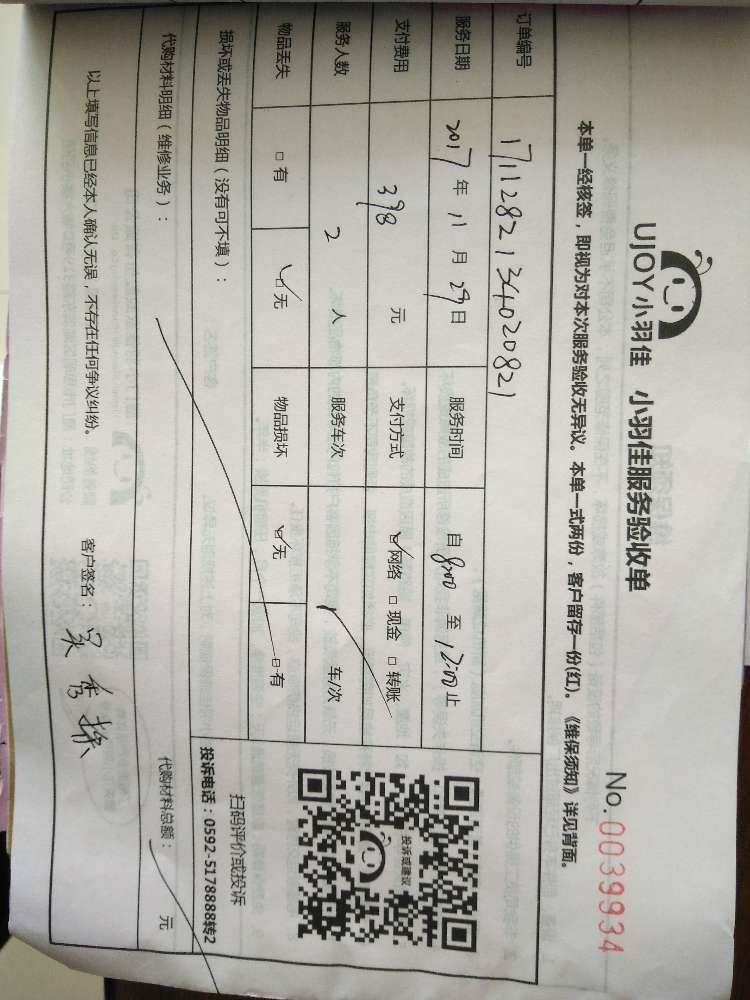 UJOY小羽佳 小羽佳服务验收单
No. 0039934
本单一经核签，即视为对本次服务验收无异议。本单一式两份，客户留存一份(红)。《维保须知》详见背面。
订单编号 1711282134020821
服务日期 2017年11月29日 服务时间 自8:00至12:00止
支付费用 398元 支付方式 ☑网络 □现金 □转账
服务人数 2人 服务车次 车/次
物品丢失 □有 ☑无 物品损坏 ☑无 □有
投诉或建议
扫码评价或投诉
投诉电话：0592-5178888转2
损坏或丢失物品明细（没有可不填）：
代购材料明细（维修业务）： 代购材料总额： 元
以上填写信息已经本人确认无误，不存在任何争议纠纷。 客户签名：